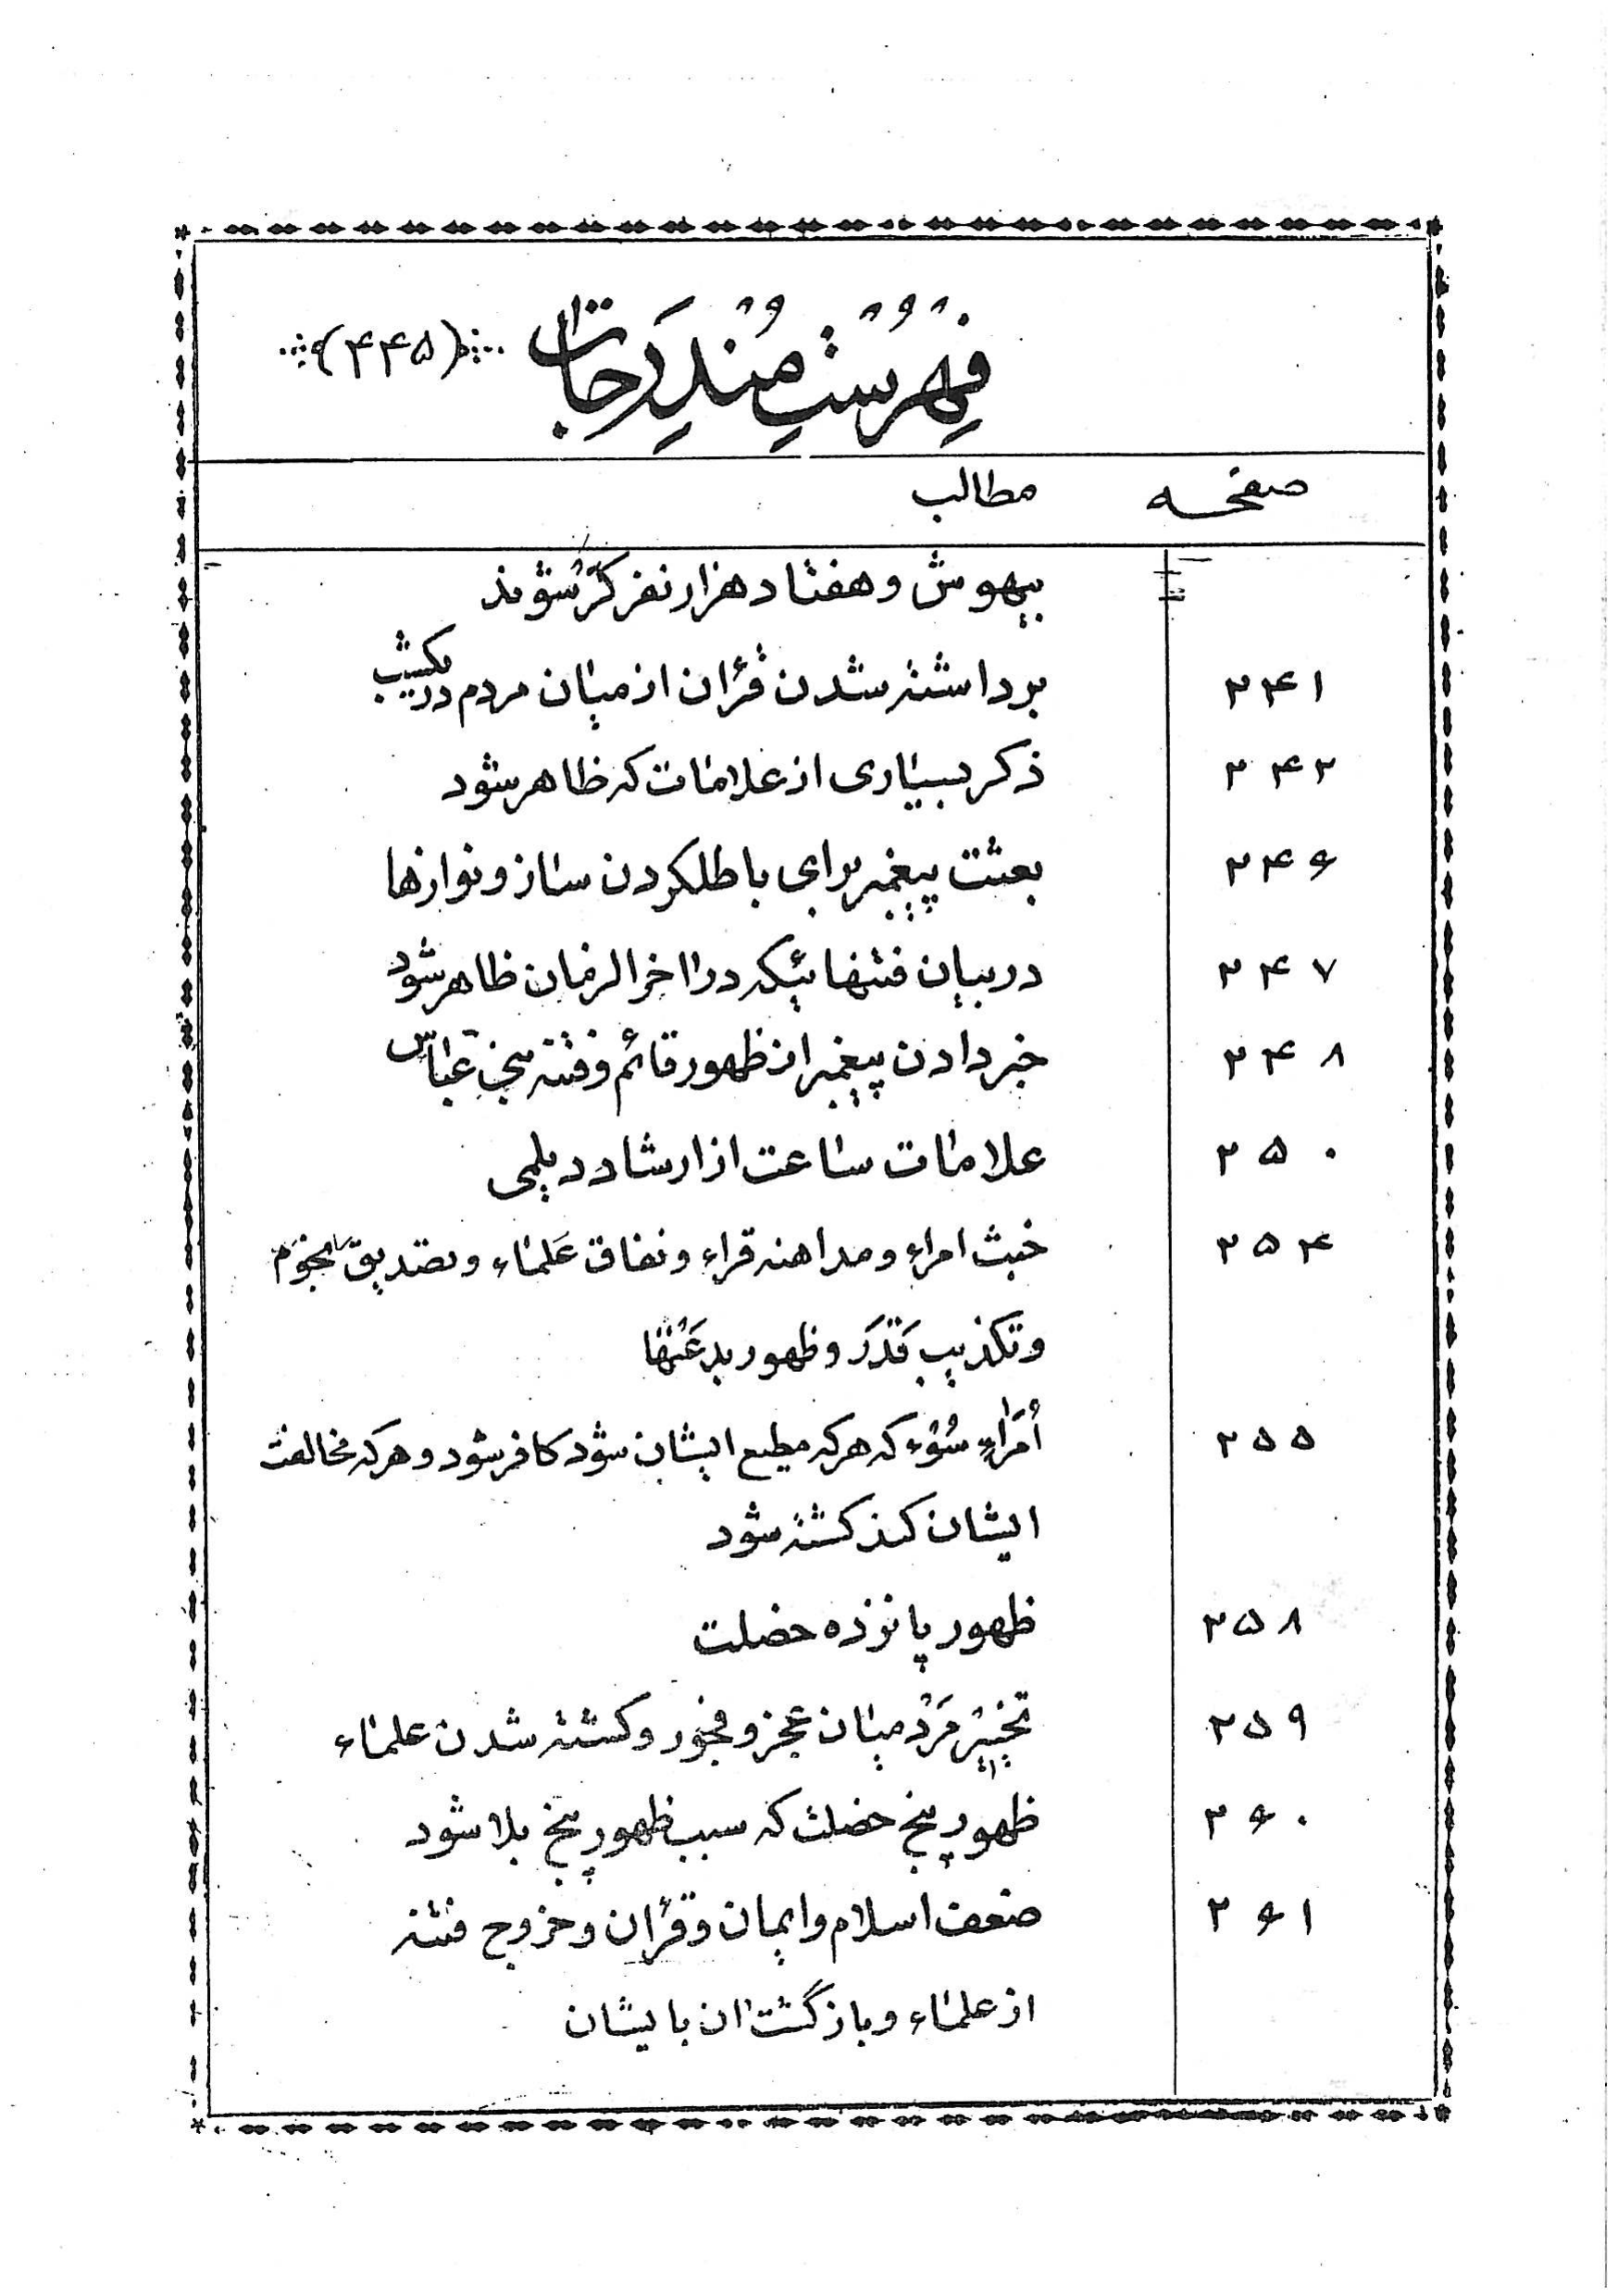 فِهْرِسْتِ مُنْدَرِجات (۴۴۵)
صفحه مطالب
بیهوش و هفتاد هزار نفر کَرْ شوند
۲۴۱ برداشته شدن قرُان از میان مردم در یکشب
۲۴۲ ذکر بسیاری از علامات که ظاهر شود
۲۴۶ بعثت پیغمبر برای باطلکردن ساز و نوازها
۲۴۷ در بیان فتنهائیکه در اخرالزمان ظاهر شود
۲۴۸ خبر دادن پیغمبر از ظهور قائم و فتنه بنی عباس
۲۵۰ علامات ساعت از ارشاد دیلمی
۲۵۴ خبث امراء و مداهنه قراء و نفاق عُلماء و تصدیق نجوم
و تکذیب قَدَرَ و ظهور بدعَتْها
۲۵۵ اُمَراءِ سُوْء که هر که مطیع ایشان شود کافر شود و هر که مخالفت
ایشان کند کشته شود
۲۵۸ ظهور پانزده خصلت
۲۵۹ تخییر مَرْد میان عجز و فجور و کشته شدن علماء
۲۶۰ ظهور پنج خصلت که سبب ظهور پنج بلا شود
۲۶۱ ضعف اسلام و ایمان و قرُان و خروج فتنه
از علماء و بازگشت ان بایشان